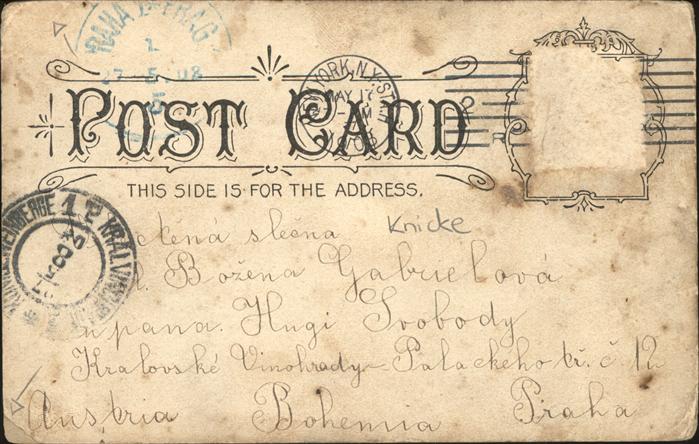 PRAHA PRAG
1
27 5 08
YORK, N.Y.
MAY 17
POST CARD
THIS SIDE IS FOR THE ADDRESS.
slečna Knicke
Božena Gabrielová
pana Hugi Svobody
Kralovské Vinohrady Palackého tř. č 12
Austria Bohemia Praha